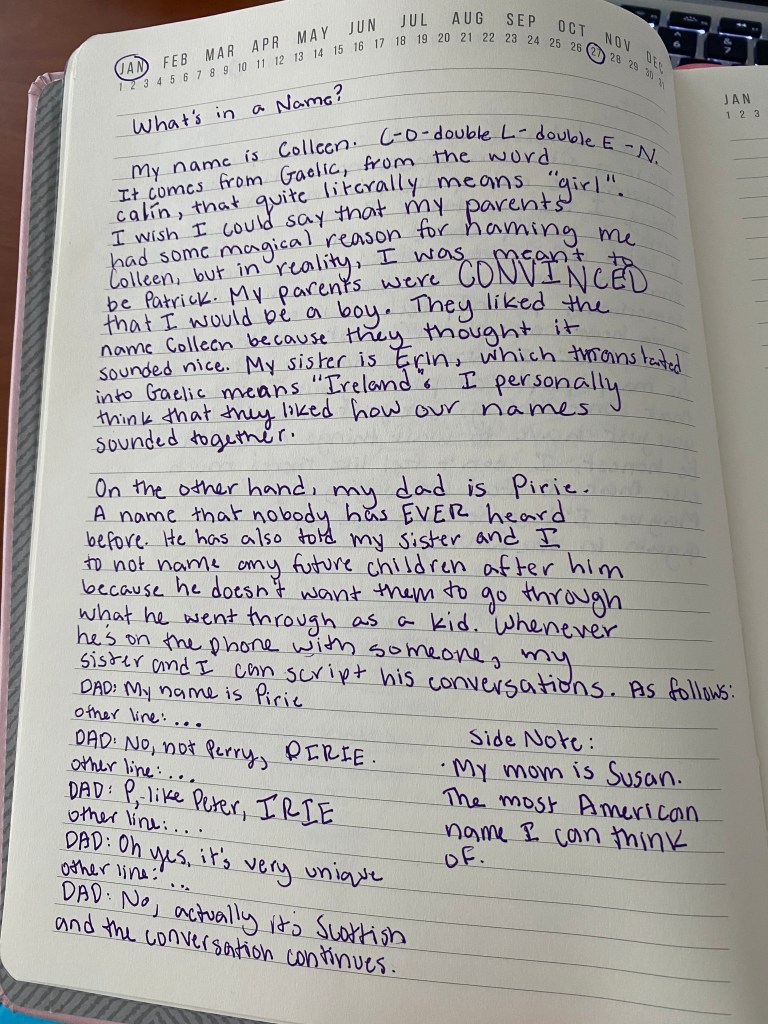 JAN FEB MAR APR MAY JUN JUL AUG SEP OCT NOV DEC
1 2 3 4 5 6 7 8 9 10 11 12 13 14 15 16 17 18 19 20 21 22 23 24 25 26 27 28 29 30 31
What's in a Name?
My name is Colleen. C-O-double L-double E-N.
It comes from Gaelic, from the word
calín, that quite literally means "girl".
I wish I could say that my parents
had some magical reason for naming me
Colleen, but in reality, I was meant to
be Patrick. My parents were CONVINCED
that I would be a boy. They liked the
name Colleen because they thought it
sounded nice. My sister is Erin, which
into Gaelic means "Ireland". I personally
think that they liked how our names
sounded together.
On the other hand, my dad is Pirie.
A name that nobody has EVER heard
before. He has also told my sister and I
to not name any future children after him
because he doesn't want them to go through
what he went through as a kid. Whenever
he's on the phone with someone, my
sister and I can script his conversations. As follows:
DAD: My name is Pirie
other line: ...
DAD: No, not Perry, PIRIE.
other line: ...
DAD: P, like Peter, IRIE
other line: ...
DAD: Oh yes, it's very unique
other line: ...
DAD: No, actually it's Scottish
and the conversation continues.
Side Note:
· My mom is Susan.
The most American
name I can think
of.
JAN
1 2 3